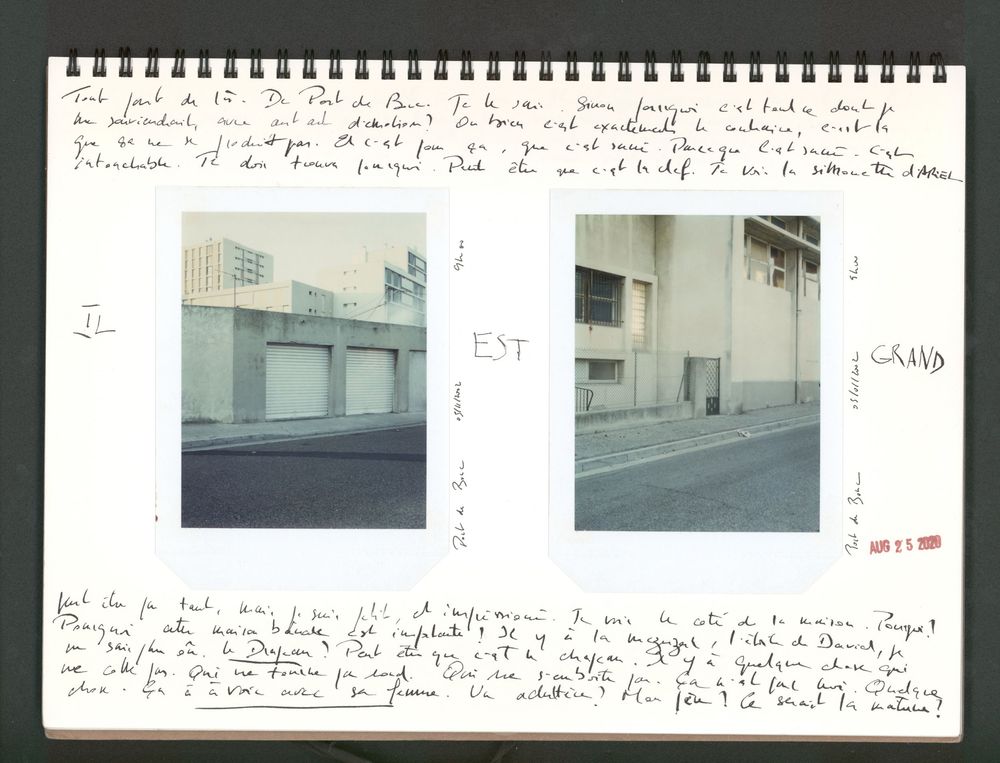 Tout part de là. De Port de Bouc. Je le sais. Sinon pourquoi c'est tout ce dont je
me souviendrais, avec autant d'émotion? Ou bien c'est exactement le contraire, c'est là
que ça ne se produit pas. Et c'est pour ça, que c'est sacré. Parce que c'est sacré. C'est
intouchable. Je dois trouver pourquoi. Peut être que c'est la clef. Je vois la silhouette d'ARIEL
IL
EST
GRAND
Port de Bouc 05/01/2012 9h00
Port de Bouc 05/01/2012 9h00
AUG 25 2020
peut être pas tant, mais je suis petit, et impressionné. Je vois le côté de la maison. Pourquoi?
Pourquoi cette maison banale est importante? Il y a la mezuzah, l'étoile de David, je
ne sais plus où. le Drapeau? Peut être que c'est le chapeau. Il y a quelque chose qui
ne colle pas. Qui ne tourne pas rond. Qui ne s'emboite pas. Ça n'est pas moi. Quelque
chose. Ça a à voir avec sa femme. Un adultère? Mon père? Ce serait la